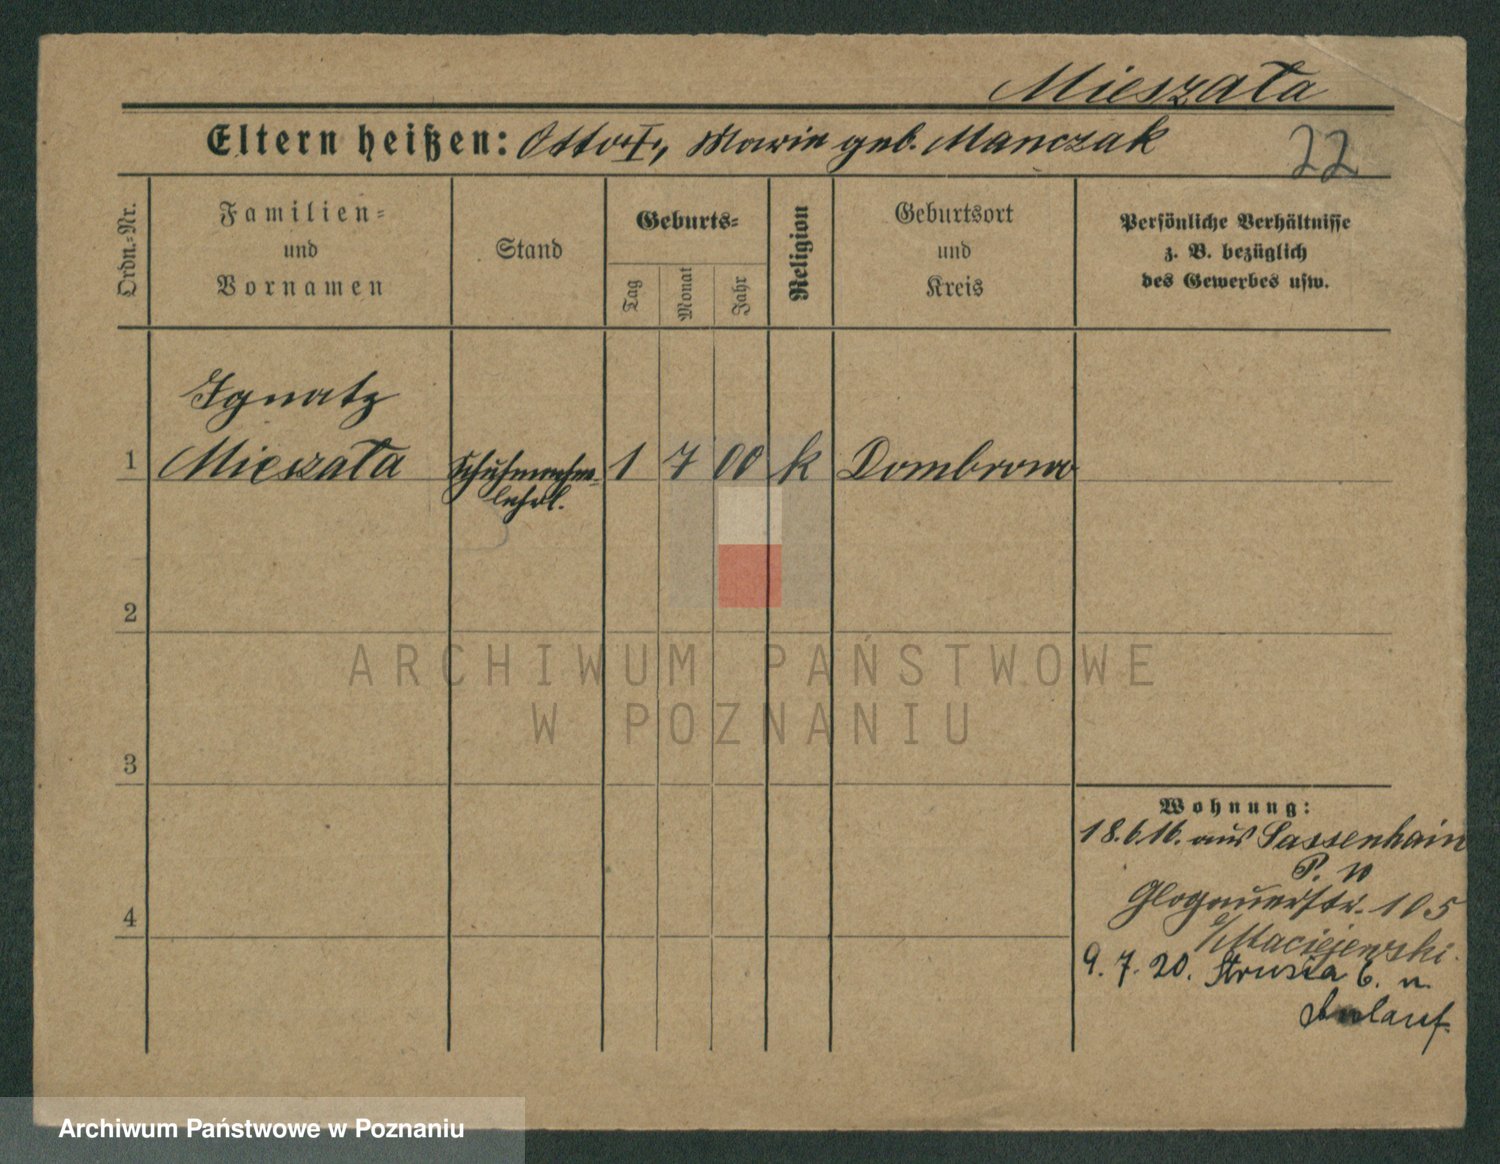 Mieszała
Eltern heißen: Otto †, Marie geb. Manczak
22
Ordn.-Nr.
Familien-
und
Vornamen
Stand
Geburts-
Tag
Monat
Jahr
Religion
Geburtsort
und
Kreis
Persönliche Verhältnisse
z. B. bezüglich
des Gewerbes usw.
Ignatz
1 Mieszała Schuhmacher- 1 7 00 k Dombrowo
lehrl.
2
3
4
Wohnung:
18.6.16. aus Sassenhain
P. W
Glogauerstr. 105
b/Maciejewski.
9. 7. 20. Strusia 6. u.
ARCHIWUM PAŃSTWOWE
W POZNANIU
Archiwum Państwowe w Poznaniu